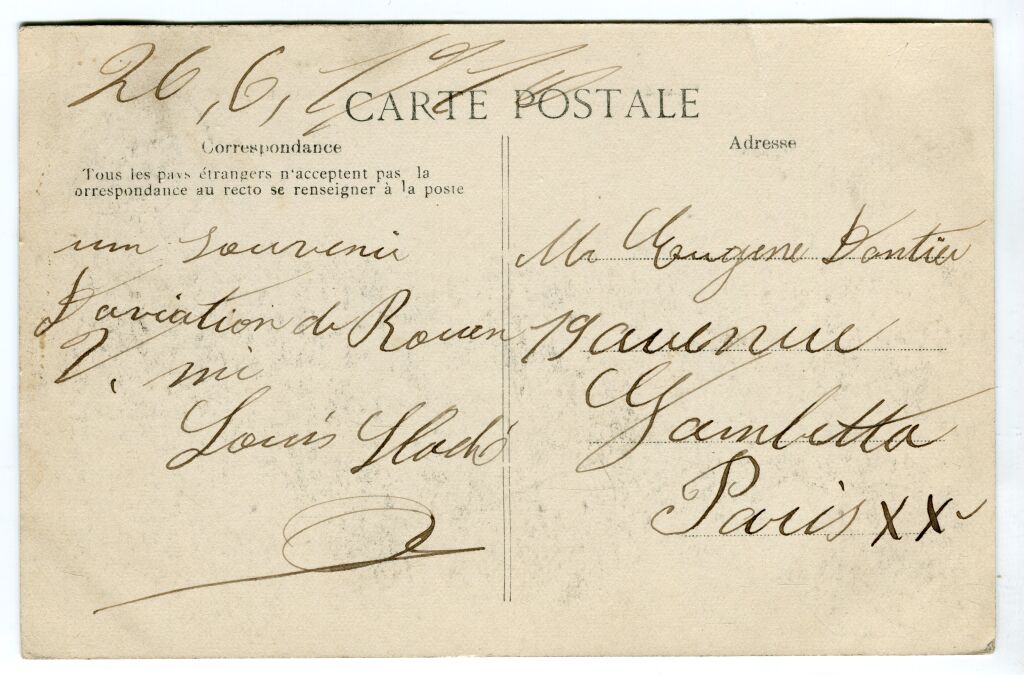 26,6,1910
CARTE POSTALE
Correspondance
Tous les pays étrangers n'acceptent pas la
orrespondance au recto se renseigner à la poste
um souvenir
D'aviation de Rouen
mi
Louis
Adresse
Mr Eugene
19 avenue
Gambetta
Paris XX